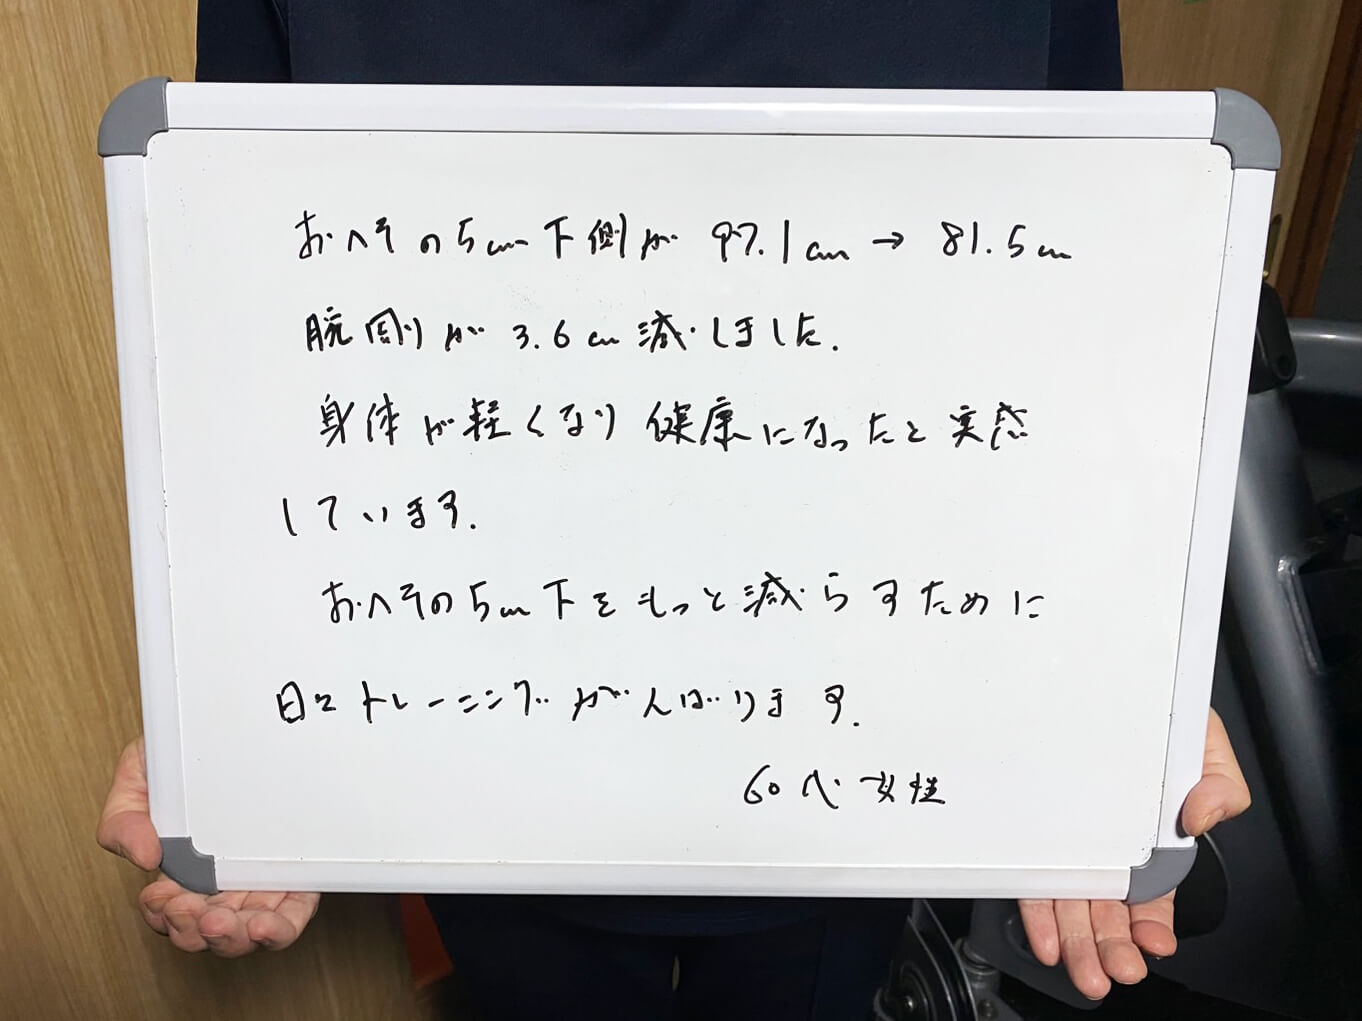 おへその5cm下側が 97.1cm → 81.5cm
腕周りが 3.6cm減しました.
身体が軽くなり健康になったと実感
しています.
おへその5cm下をもっと減らすために
日々トレーニングがんばります.
60代 女性